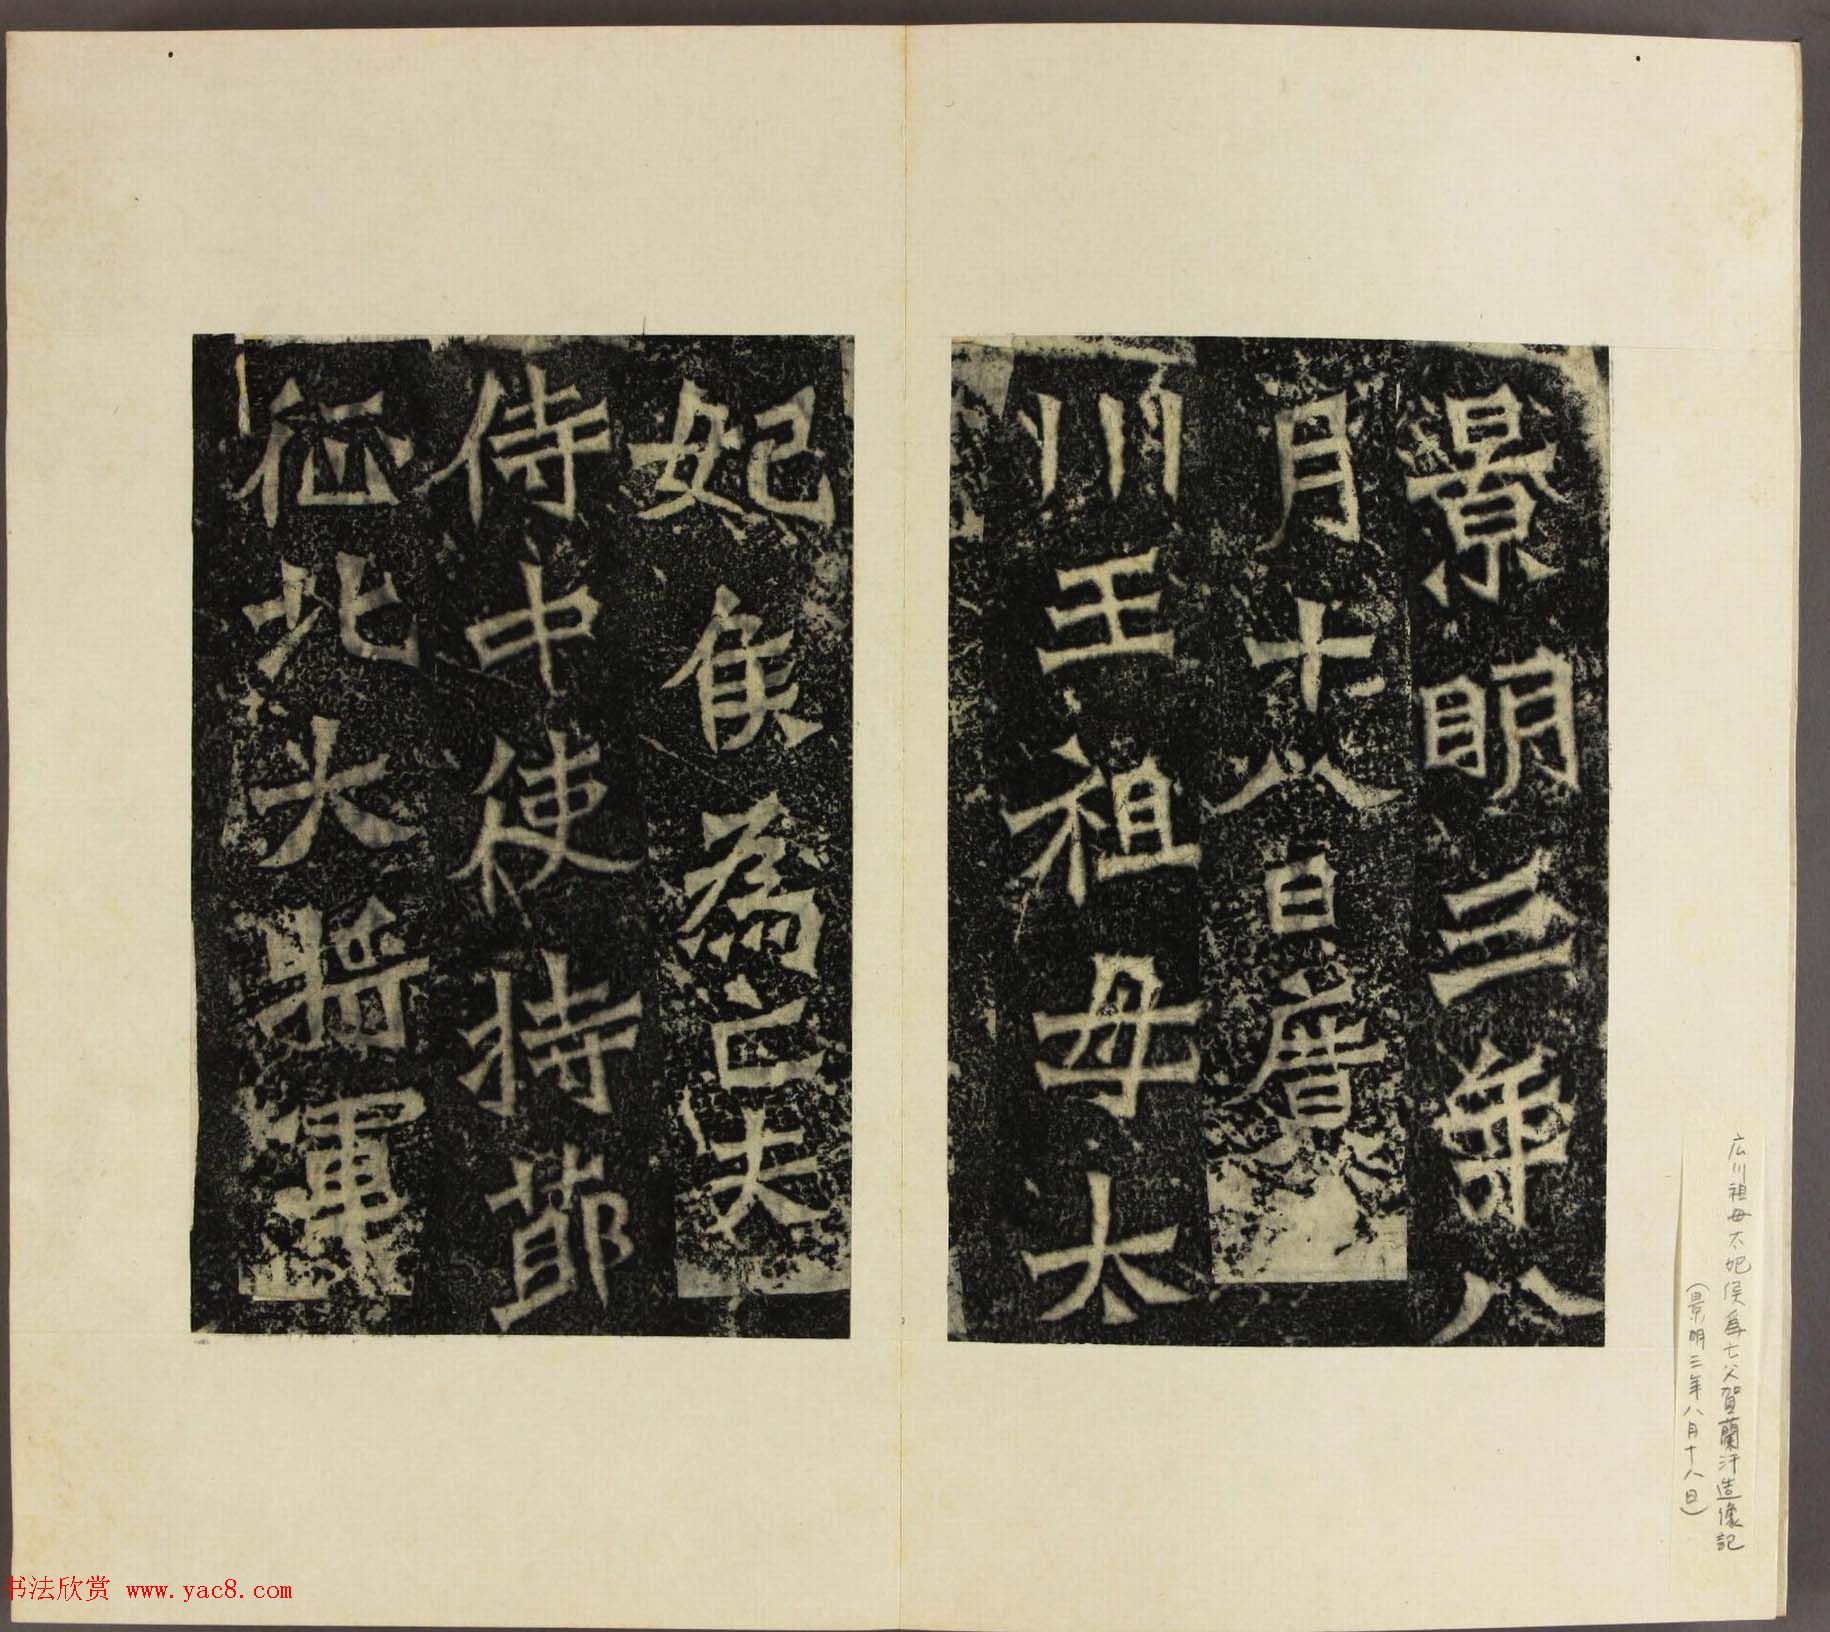 景明三年八
月十八日廣
川王祖母太
妃侯為亡夫
侍中使持節
征北大將軍
広川祖母太妃侯為亡父賀蘭汗造像記
(景明三年八月十八日)
书法欣赏 www.yac8.com